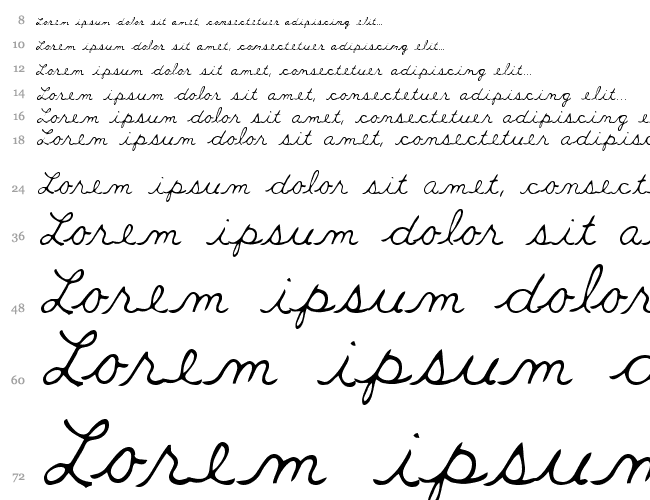 8 Lorem ipsum dolor sit amet, consectetuer adipiscing elit...
10 Lorem ipsum dolor sit amet, consectetuer adipiscing elit...
12 Lorem ipsum dolor sit amet, consectetuer adipiscing elit...
14 Lorem ipsum dolor sit amet, consectetuer adipiscing elit...
16 Lorem ipsum dolor sit amet, consectetuer adipiscing e
18 Lorem ipsum dolor sit amet, consectetuer adipisc
24 Lorem ipsum dolor sit amet, consect
36 Lorem ipsum dolor sit a
48 Lorem ipsum dolor
60 Lorem ipsum d
72 Lorem ipsum